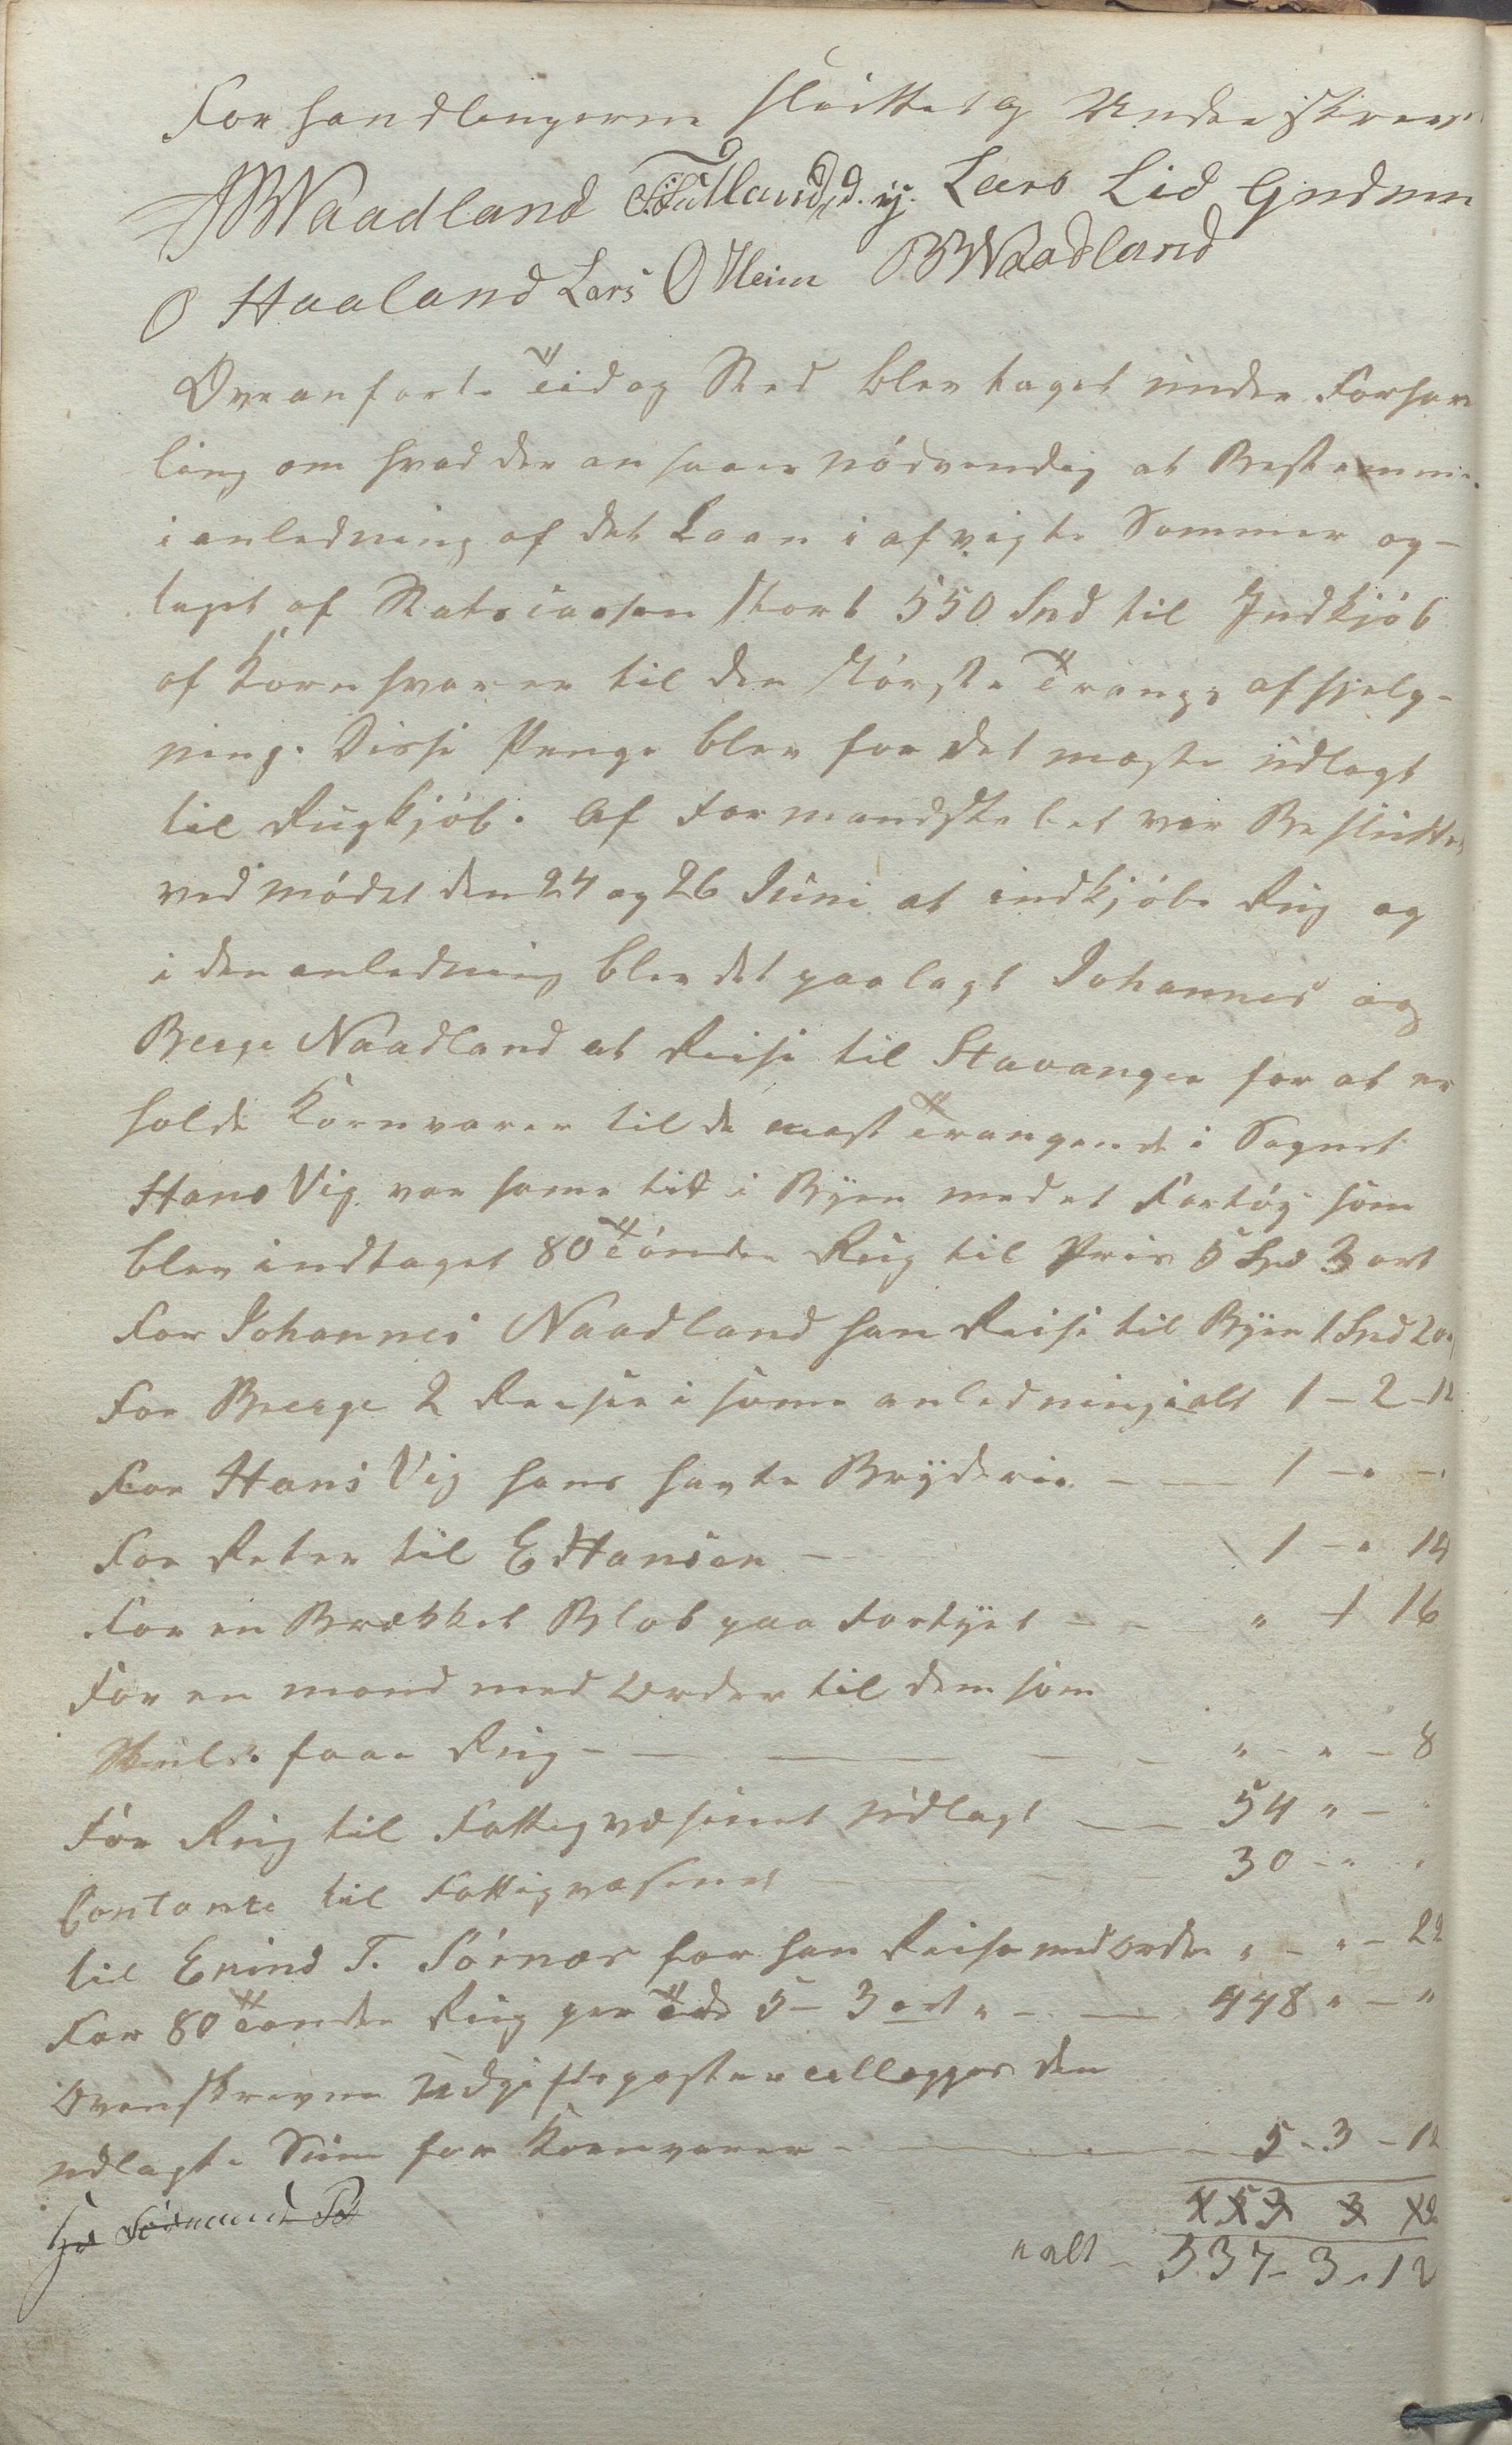 Forhandlingerne sluttet og Underskrevet
JB Naadland d. y. Lars Lid Gudmun
O Haaland Lars O Heim BB Naadland
Ovenanførte Tid og Sted blev taget under Forhan
ling om hvad der ansaaes nödvendig at Bestemme
i anledning af det Laan i afvigte Sommer op-
taget af Statscassen stort 550 Spd til Indkjöb
af Kornhvarer til den störste Trangs afhjelp-
ning. Disse Penge blev for det meste udlagt
til Rugkjöb. Af Formandskabet var Besluttet
ved mödet den 24 og 26 Juni at indkjöbe Rug og
i den anledning blev det paalagt Johannes og
Berge Naadland at Reise til Stavanger for at er
holde Kornvarer til de mest Trangende i Sognet
Hans Vig var same tid i Byen med et Fartög som
blev indtaget 80 Tönder Rug til Pris 5 Spd 3 ort
For Johannes Naadland han Reise til Byen 1 Spd 2 ort
For Berge 2 Reiser i same anledning ialt 1 - 2 - 12
For Hans Vig hans havte Bryderie - - 1 - " - "
For Reter til E Hansen - 1 - " 14
For en Brækket Blok paa Fartyet - - - " 1 16
For en mand med Order til dem som
Skulde faae Rug - - - - - " - " - 8
For Rug til Fattigvæsenet Udlagt - - 54 " - "
Contante til Fattigvæsenet - - - 30 - " "
til Enind T. Sörnæs for han Reise med Order " - " - 22
For 80 Tönder Rug per Tde 5 - 3 ort " - - 448 " - "
Ovenskrevne Udgiftsposter tillegges den
udlagte Sum for Kornvarer - - - 5 - 3 - 12
ialt - 537 - 3 - 12